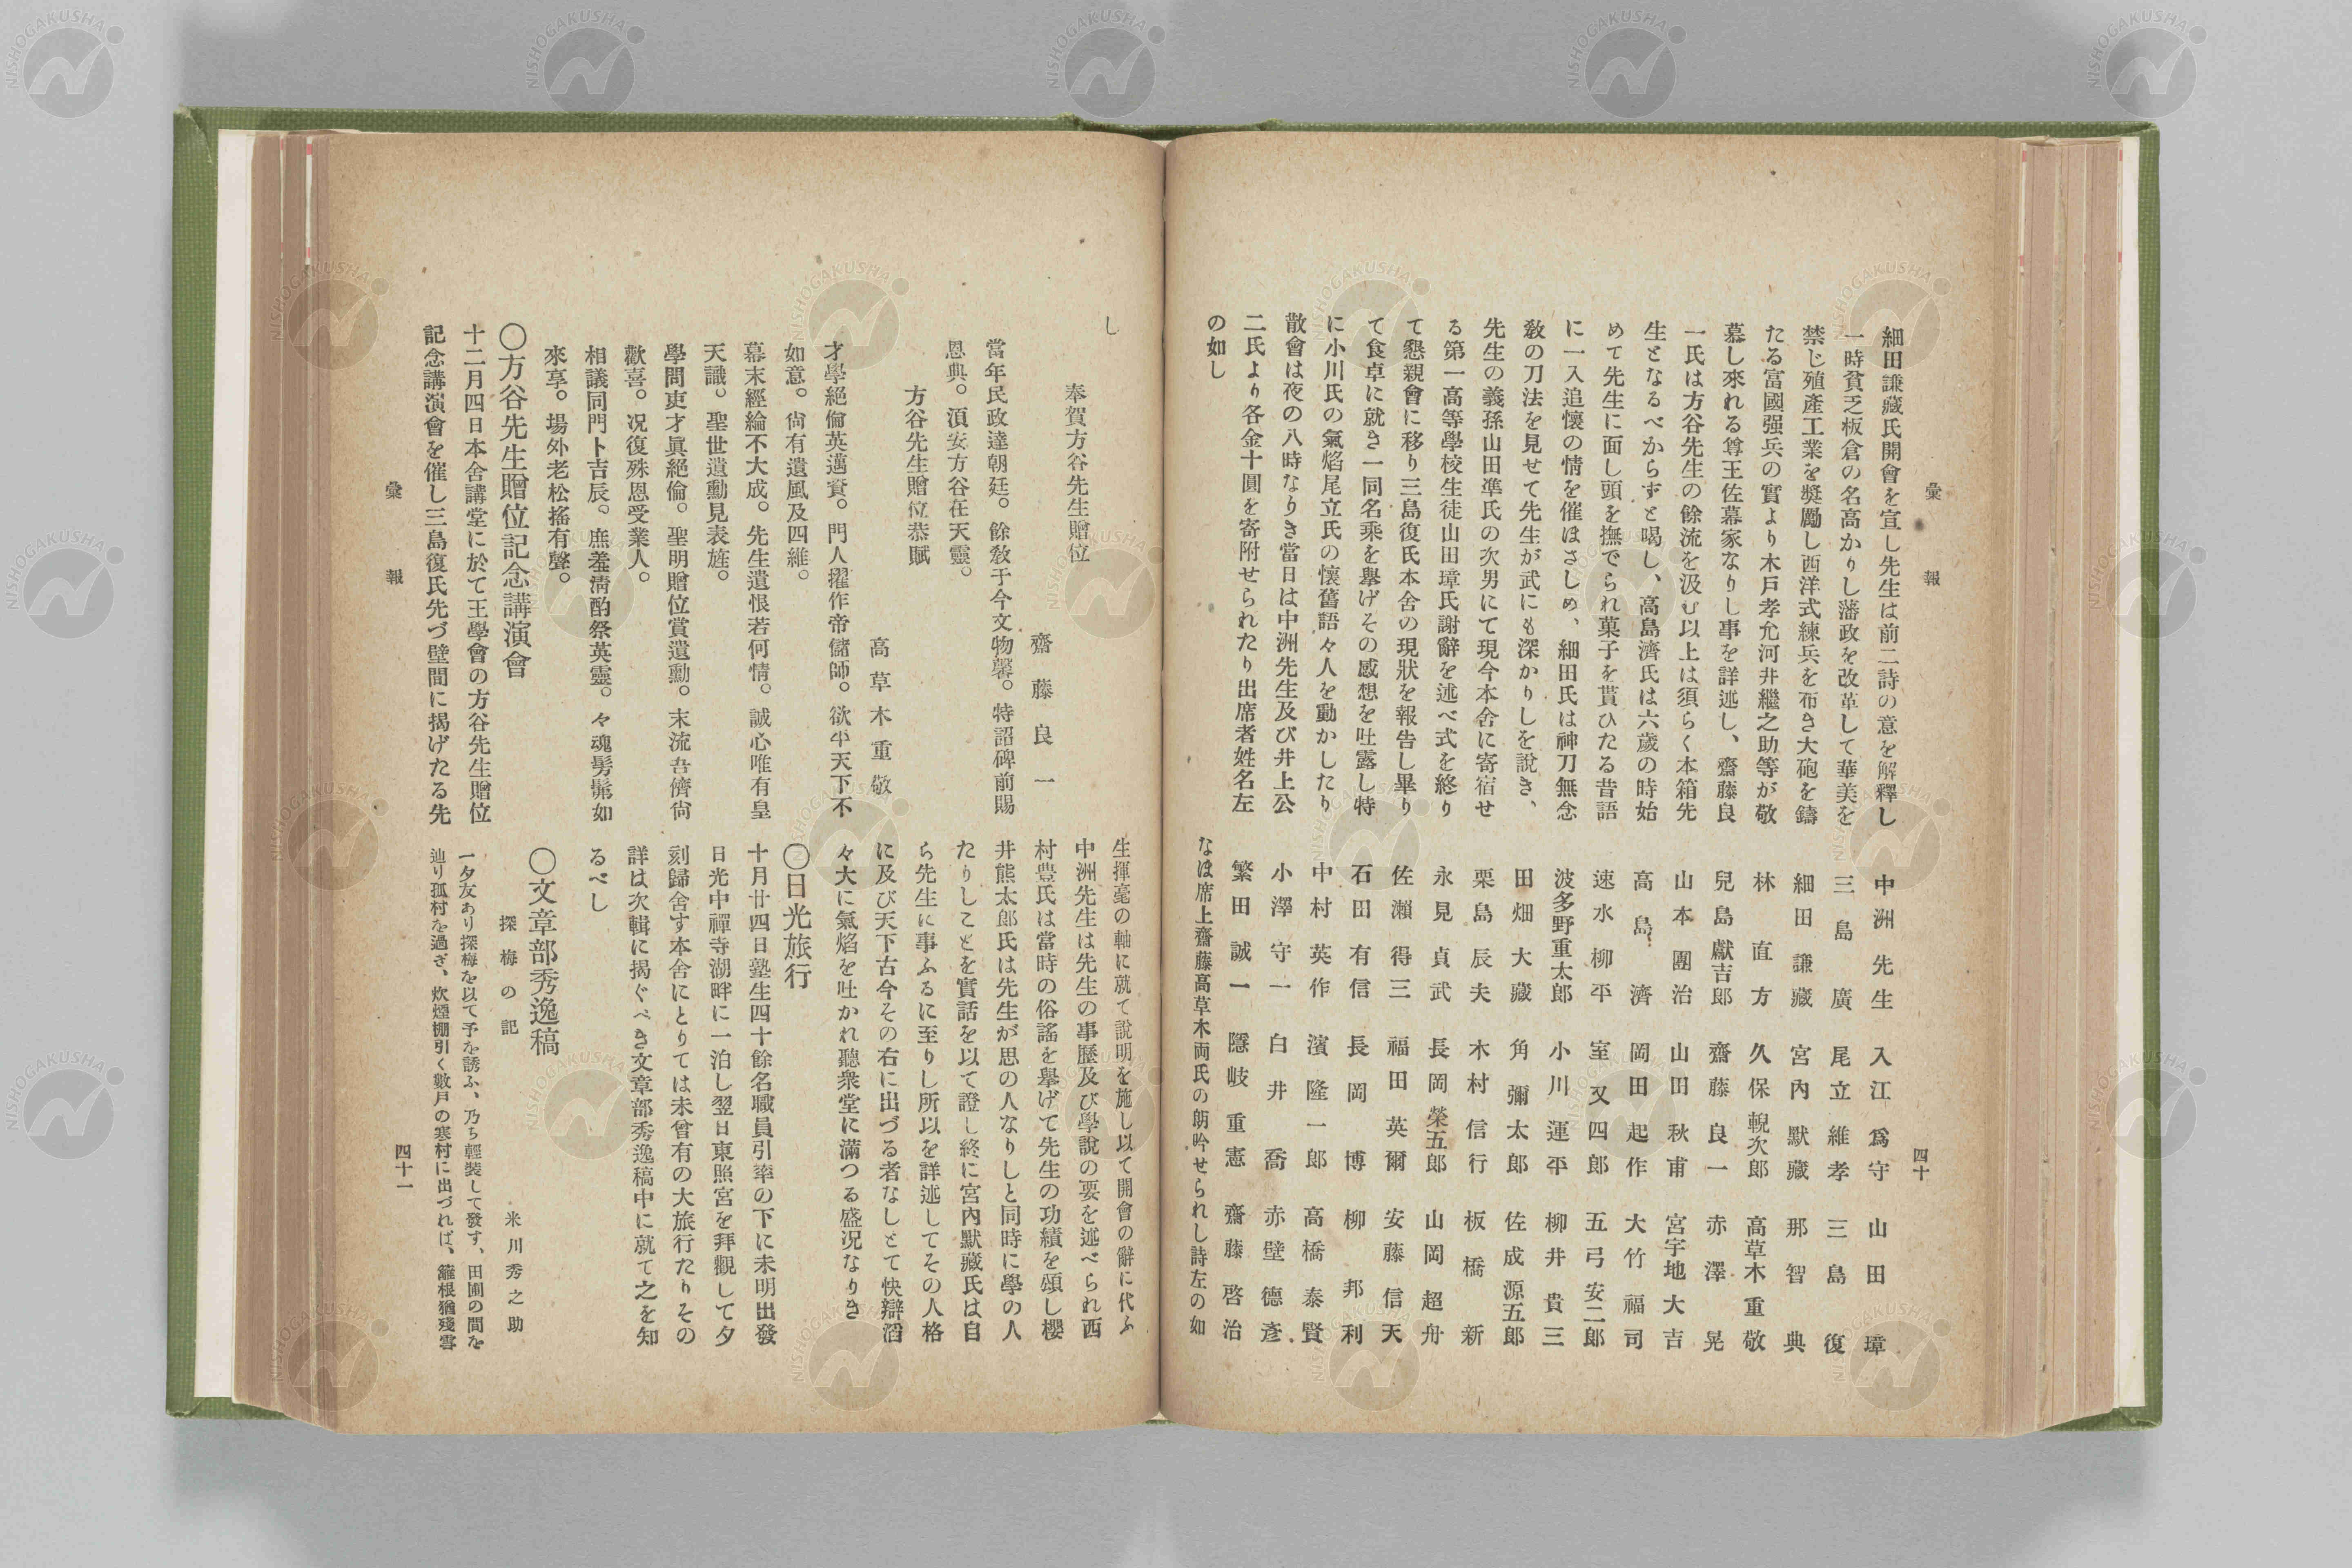 彙報
四十
細田謙藏氏開會を宣し先生は前二詩の意を解釋し
一時貧乏板倉の名高かりし藩政を改革して華美を
禁じ殖產工業を奬勵し西洋式練兵を布き大砲を鑄
たる富國强兵の實より木戸孝允河井繼之助等が敬
慕し來れる尊王佐幕家なりし事を詳述し、齋藤良
一氏は方谷先生の餘流を汲む以上は須らく本箱先
生となるべからずと喝し、高島濟氏は六歲の時始
めて先生に面し頭を撫でられ菓子を貰ひたる昔語
に一入追懷の情を催はさしめ、細田氏は神刀無念
敎の刀法を見せて先生が武にも深かりしを說き、
先生の義孫山田準氏の次男にて現今本舍に寄宿せ
る第一高等學校生徒山田璋氏謝辭を述べ式を終り
て懇親會に移り三島復氏本舍の現狀を報告し畢り
て食卓に就き一同名乘を擧げその感想を吐露し特
に小川氏の氣焰尾立氏の懷舊語々人を動かしたり
散會は夜の八時なりき當日は中洲先生及び井上公
二氏より各金十圓を寄附せられたり出席者姓名左
の如し
中洲先生 入江爲守 山田璋
三島廣 尾立維孝 三島復
細田謙藏 宮內默藏 那智典
林直方 久保輗次郎 高草木重敬
兒島獻吉郎 齋藤良一 赤澤晃
山本團治 山田秋甫 宮宇地大吉
高島濟 岡田起作 大竹福司
速水柳平 室又四郎 五弓安二郎
波多野重太郎 小川運平 柳井貴三
田畑大藏 角彌太郎 佐成源五郎
栗島辰夫 木村信行 板橋新
永見貞武 長岡榮五郎 山岡超舟
佐瀨得三 福田英爾 安藤信天
石田有信 長岡博 柳邦利
中村英作 濱隆一郎 高橋泰賢
小澤守一 白井喬 赤壁德彥
繁田誠一 隱岐重憲 齋藤啓治
なほ席上齋藤高草木両氏の朗吟せられし詩左の如
し
奉賀方谷先生贈位
齋藤良一
當年民政達朝廷。餘敎于今文物馨。特詔碑前賜
恩典。須安方谷在天靈。
方谷先生贈位恭賦
高草木重敬
才學絕倫英邁資。門人擢作帝儲師。欲半天下不
如意。尙有遺風及四維。
幕末經綸不大成。先生遺恨若何情。誠心唯有皇
天識。聖世遺勳見表旌。
學問吏才眞絕倫。聖明贈位賞遺勳。末流吾儕尙
歡喜。况復殊恩受業人。
相議同門卜吉辰。庶羞淸酌祭英靈。々魂髣髴如
來享。場外老松搖有聲。
〇方谷先生贈位記念講演會
十二月四日本舍講堂に於て王學會の方谷先生贈位
記念講演會を催し三島復氏先づ壁間に揭げたる先
生揮毫の軸に就て說明を施し以て開會の辭に代ふ
中洲先生は先生の事歷及び學說の要を述べられ西
村豊氏は當時の俗謠を擧げて先生の功績を頌し櫻
井熊太郎氏は先生が思の人なりしと同時に學の人
たりしことを實話を以て證し終に宮內默藏氏は自
ら先生に事ふるに至りし所以を詳述してその人格
に及び天下古今その右に出づる者なしとて快辯滔
々大に氣焰を吐かれ聽衆堂に滿つる盛況なりき
〇日光旅行
十月廿四日塾生四十餘名職員引率の下に未明出發
日光中禪寺湖畔に一泊し翌日東照宮を拜觀して夕
刻歸舍す本舍にとりては未曾有の大旅行たりその
詳は次輯に揭ぐべき文章部秀逸稿中に就て之を知
るべし
〇文章部秀逸稿
探梅の記
米川秀之助
一夕友あり探梅を以て予を誘ふ、乃ち輕裝して發す、田圃の間を
辿り孤村を過ぎ、炊煙棚引く數戶の寒村に出づれば、籬根猶殘雪
彙報
四十一
NISHOGAKUSHA